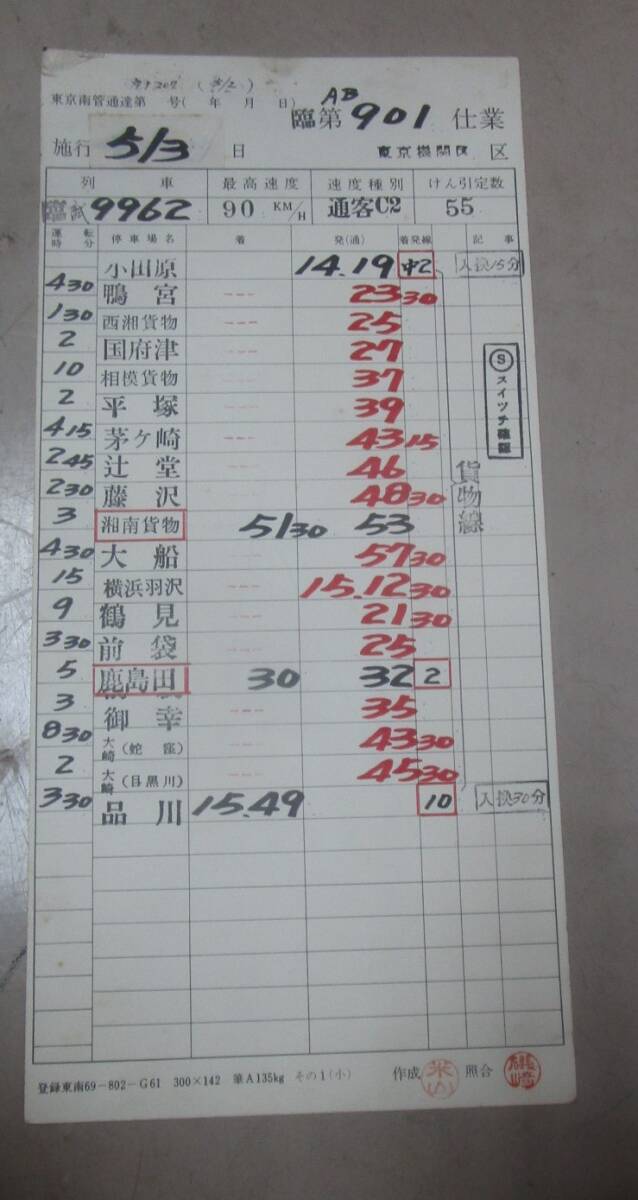 東京南管通達第 号( 年 月 日)
AB
臨第 901 仕業
施行 5/3 日
東京機関区 区
列車 最高速度 速度種別 けん引定数
臨試 9962 90 KM/H 通客C2 55
運転時分 停車場名 着 発(通) 着発線 記事
小田原 14.19 中2 入換15分
430 鴨宮 --- 2330
130 西湘貨物 --- 25
2 国府津 --- 27
10 相模貨物 --- 37
2 平塚 --- 39
415 茅ケ崎 --- 4315
245 辻堂 --- 46
230 藤沢 --- 4830
3 湘南貨物 5130 53
430 大船 --- 5730
15 横浜羽沢 --- 15.1230
9 鶴見 --- 2130
330 前袋 --- 25
5 鹿島田 30 32 2
3 御幸 --- 35
830 大崎(蛇窪) --- 4330
2 大崎(目黒川) --- 4530
330 品川 15.49 10 入換30分
Ⓢスイッチ確認
貨物線
登録東南69-802-G61 300×142 筆A135kg その1(小) 作成 米山 照合